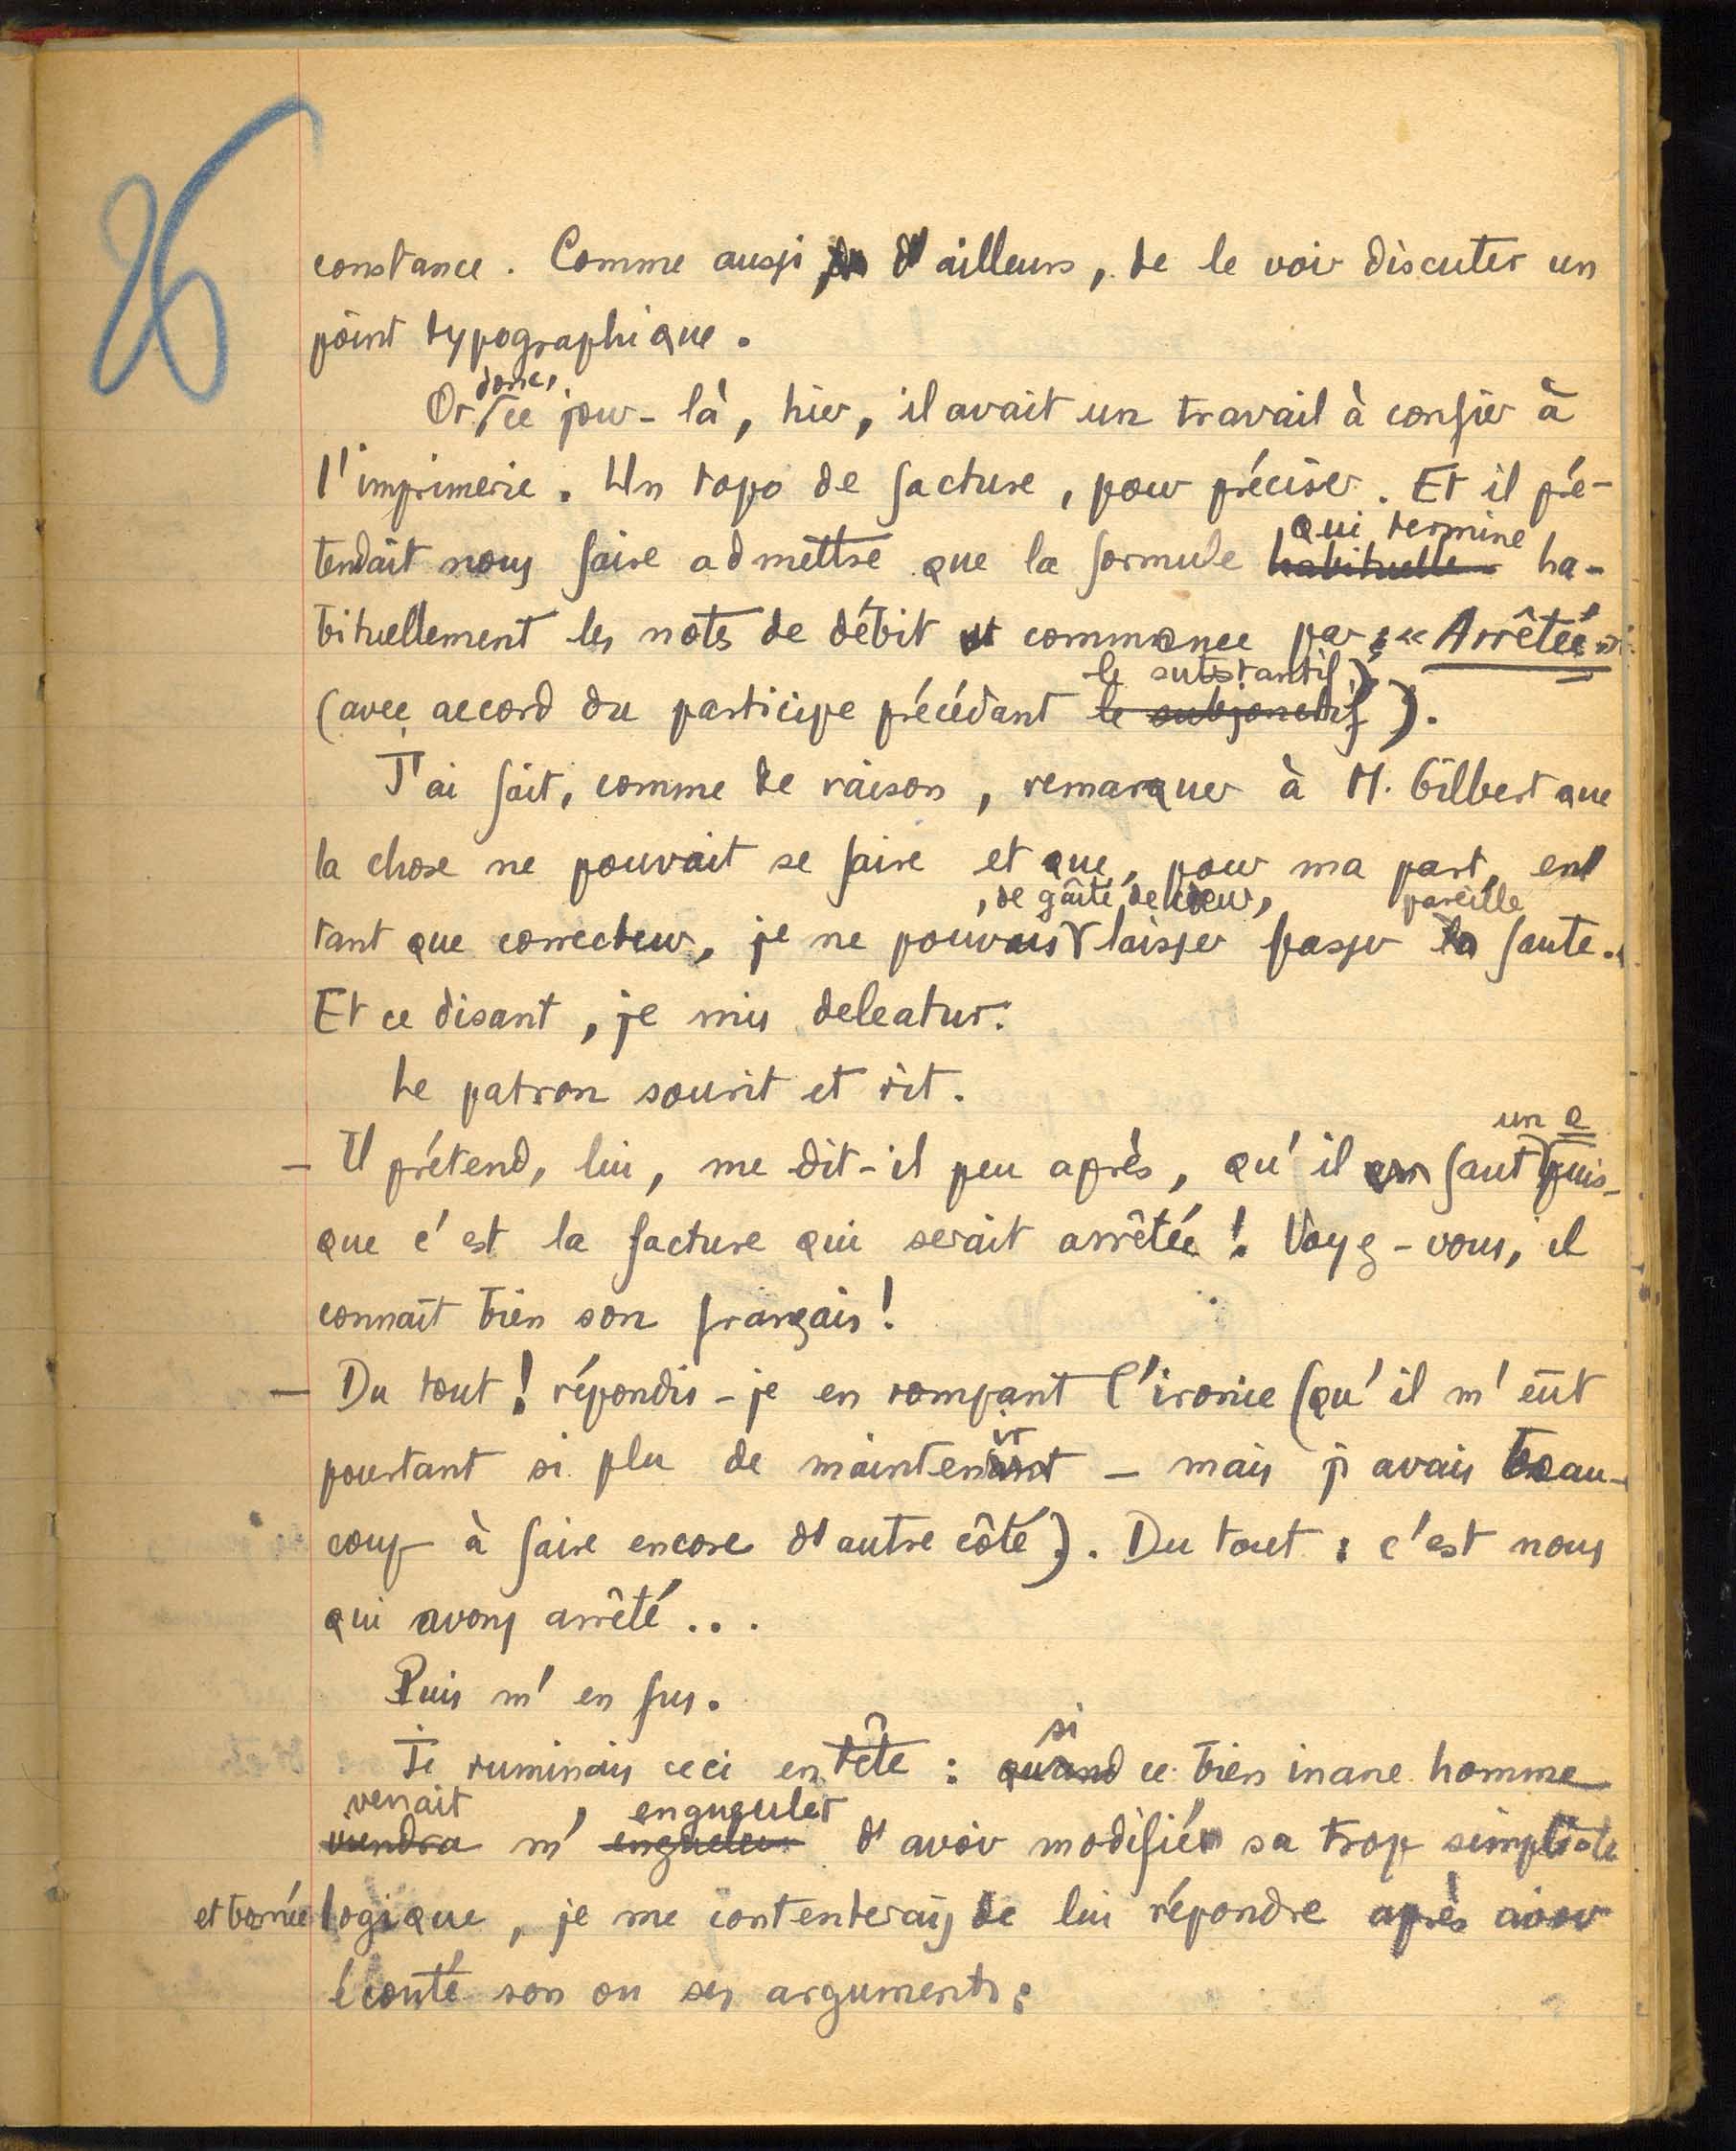 26
constance. Comme aussi d'ailleurs, de le voir discuter un
point typographique.
donc,
Or, ce jour-là, hier, il avait un travail à confier à
l'imprimerie. Un topo de facture, pour préciser. Et il pré-
qui termine
tendait nous faire admettre que la formule habituelle ha-
bituellement les notes de débit commence par : « Arrêtée »
le substantif)
(avec accord du participe précédant le subjonctif).
J'ai fait, comme de raison, remarquer à M. Gilbert que
la chose ne pouvait se faire et que, pour ma part, en
, de gaîté de cœur, pareille
tant que correcteur, je ne pouvais laisser passer la faute.
Et ce disant, je mis deleatur.
Le patron sourit et rit.
un e
— Il prétend, lui, me dit-il peu après, qu'il en faut puis-
que c'est la facture qui serait arrêtée ! Voyez-vous, il
connaît bien son français !
— Du tout ! répondis-je en rompant l'ironie (qu'il m'eût
ir
pourtant si plu de maintenant — mais j'avais beau-
coup à faire encore d'autre côté). Du tout : c'est nous
qui avons arrêté...
Puis m'en fus.
si
Je ruminais ceci en tête : quand ce bien inane homme
venait , engueuler
viendra m' engueuler d'avoir modifié sa trop simpliste
et bornée logique, je me contenterais de lui répondre après avoir
écouté son ou ses arguments :